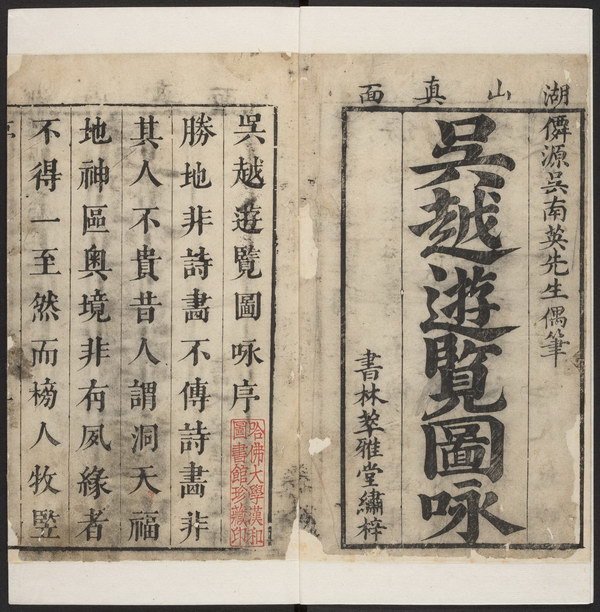 湖山真面
僊源吳南英先生偶筆
吳越遊覽圖咏
書林萃雅堂繡梓
吳越遊覽圖咏序
勝地非詩畵不傳詩畵非
其人不貴昔人謂洞天福
地神區奧境非有夙緣者
不得一至然而榜人牧豎
哈佛大學漢和
圖書館珍藏印